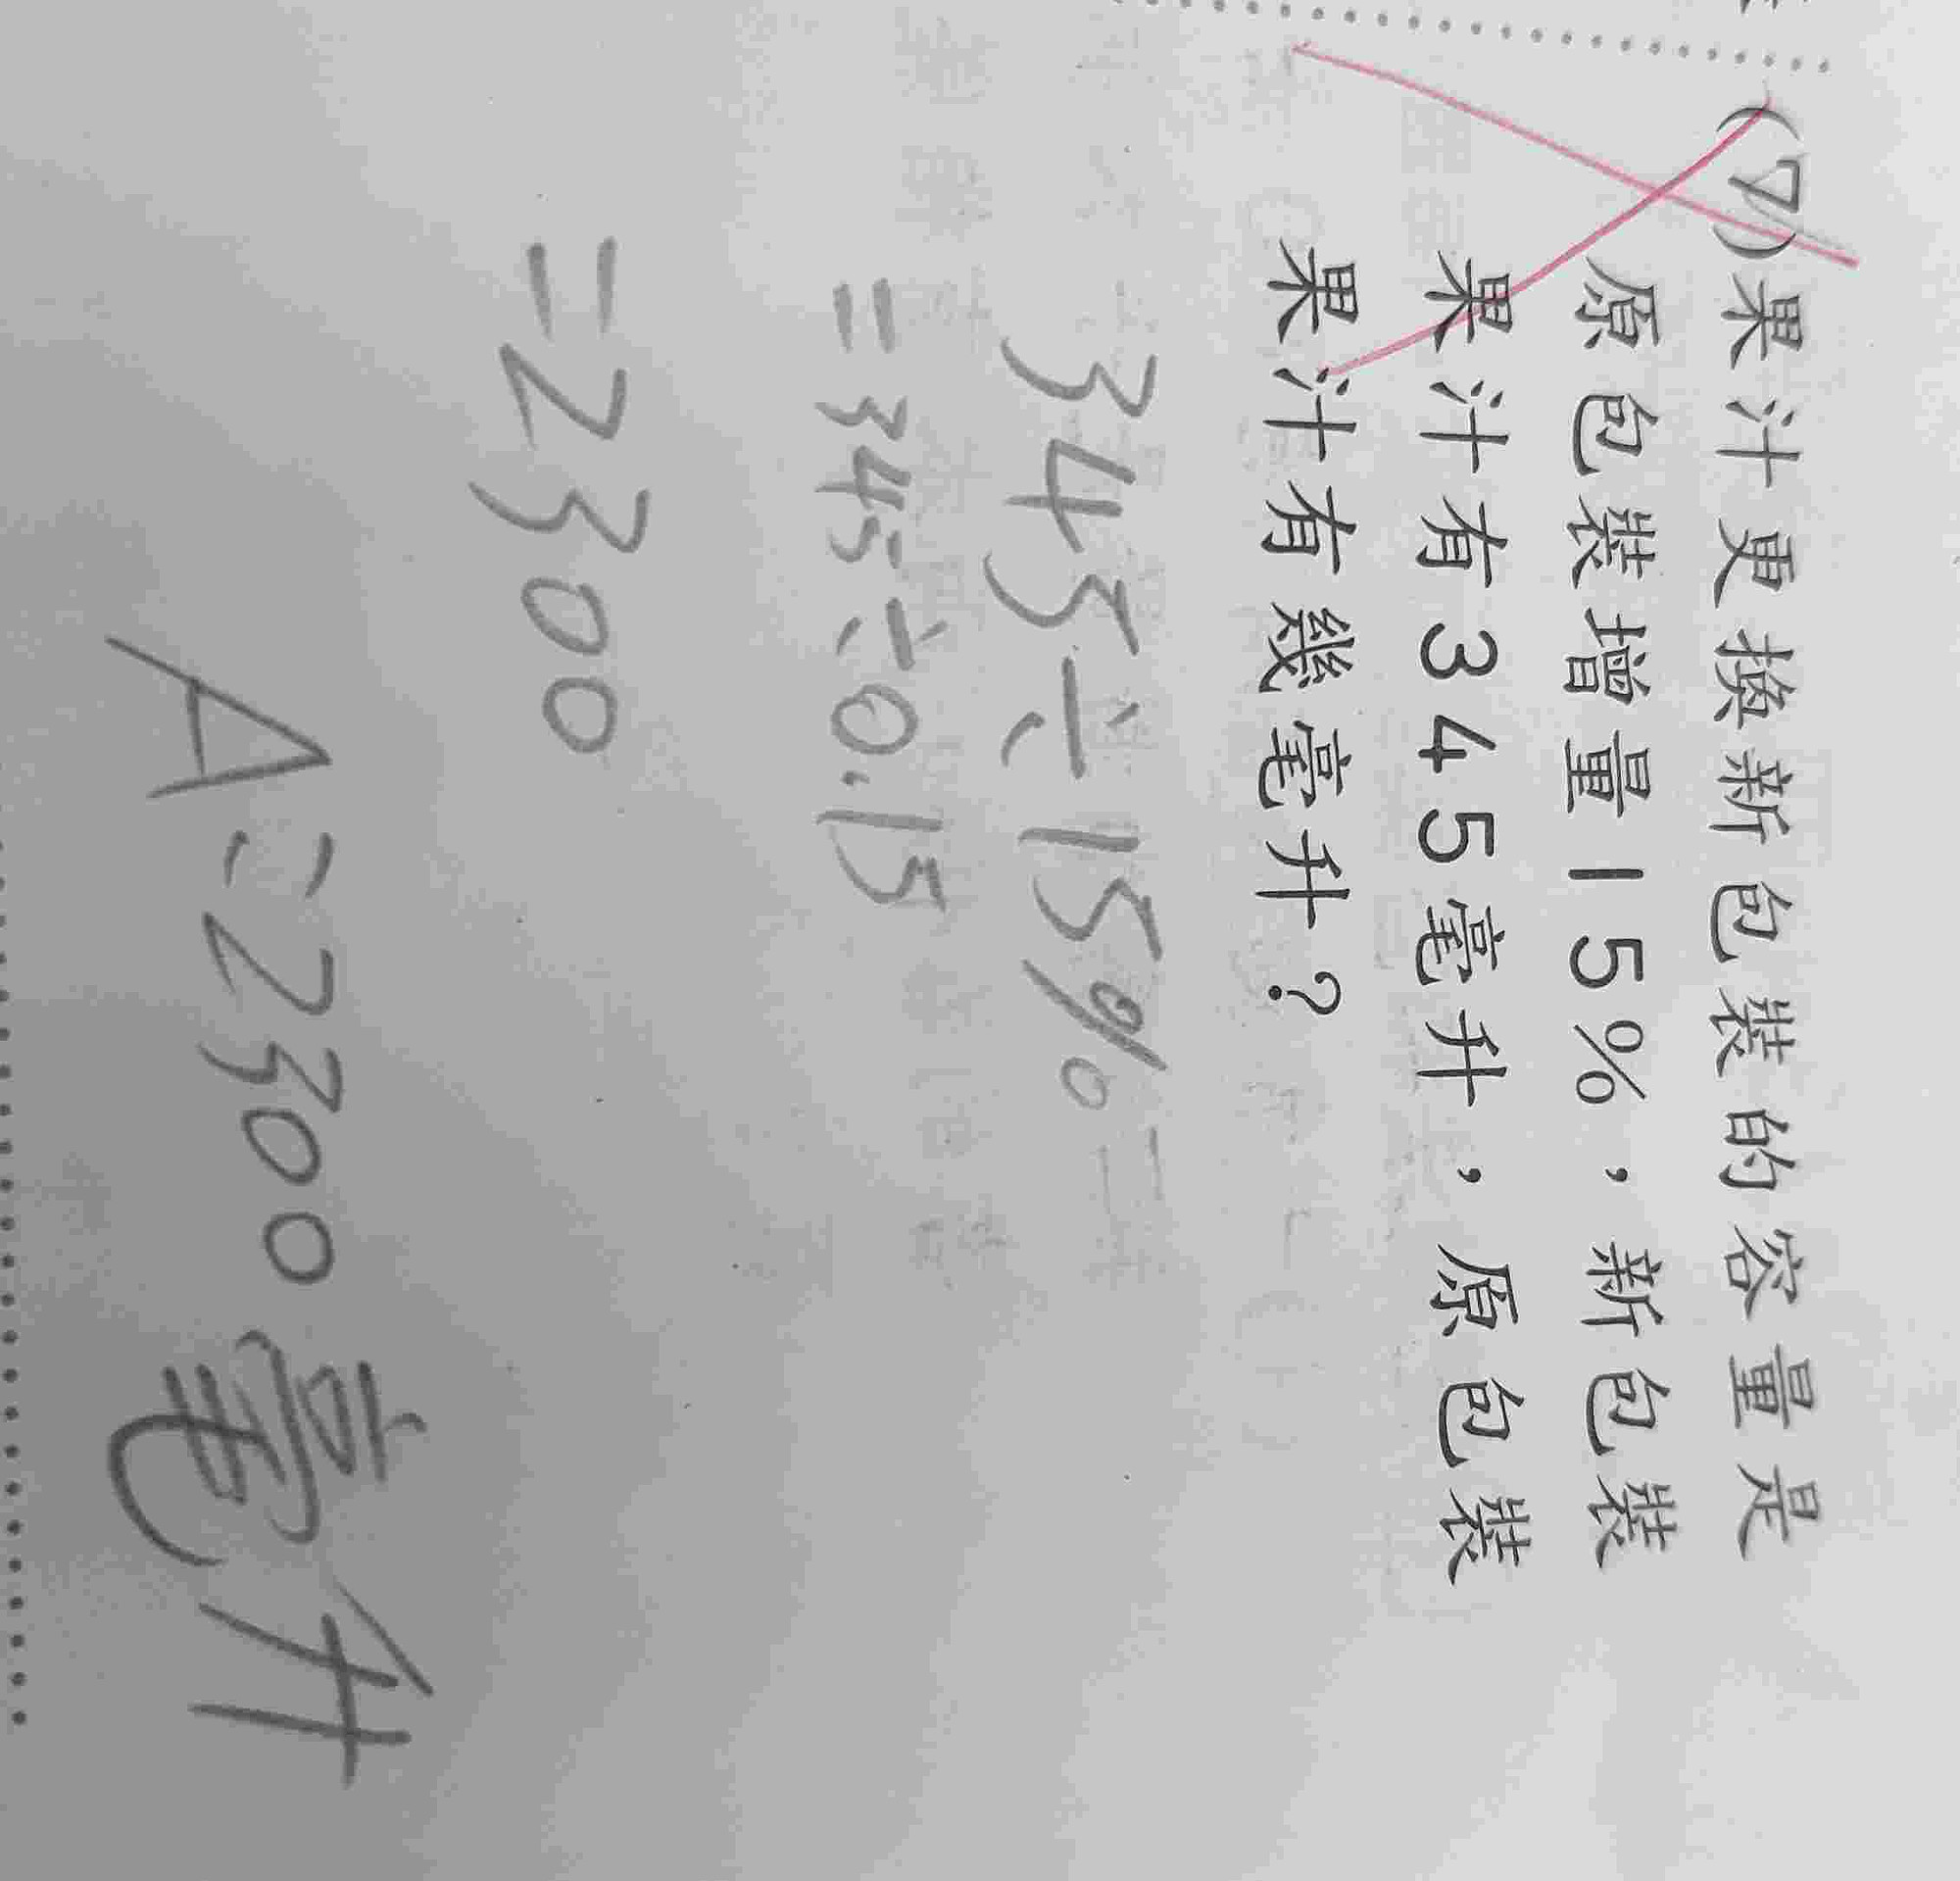 (7)果汁更換新包裝的容量是
原包裝增量15%，新包裝
果汁有345毫升，原包裝
果汁有幾毫升？
345÷15%=
=345÷0.15
=2300
A:2300毫升